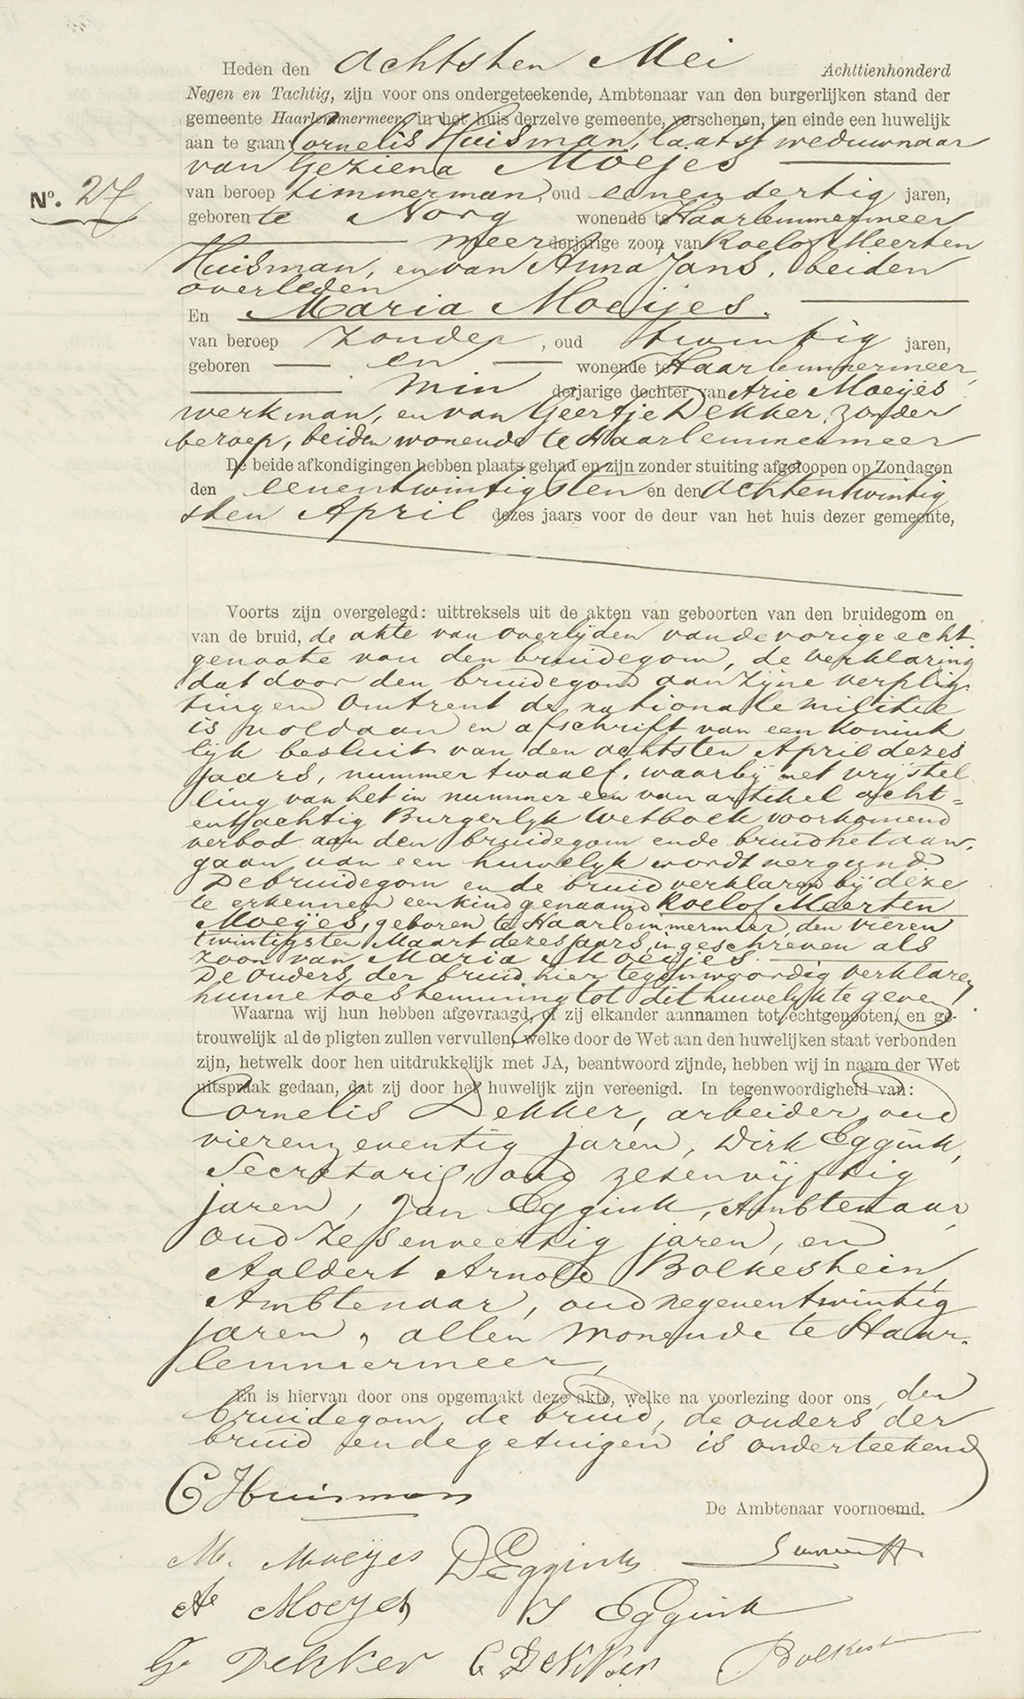 Heden den achtsten Mei Achttienhonderd
Negen en Tachtig, zijn voor ons ondergeteekende, Ambtenaar van den burgerlijken stand der
gemeente Haarlemmermeer, in het huis derzelve gemeente, verschenen, ten einde een huwelijk
aan te gaan Cornelis Huisman, laatst weduwnaar
van Geziena Moejes
No. 27
van beroep timmerman, oud eenen dertig jaren,
geboren te Norg wonende te Haarlemmermeer
meerderjarige zoon van Roelof Meerten
Huisman, en van Anna Jans, beiden
overleden
En Maria Moeijes.
van beroep zonder, oud twintig jaren,
geboren en wonende te Haarlemmermeer,
minderjarige dochter van Arie Moeijes
werkman, en van Geertje Dekker, zonder
beroep, beiden wonende te Haarlemmermeer
De beide afkondigingen hebben plaats gehad en zijn zonder stuiting afgeloopen op Zondagen
den eenentwintigsten en den achtentwintig
sten April dezes jaars voor de deur van het huis dezer gemeente,
Voorts zijn overgelegd: uittreksels uit de akten van geboorten van den bruidegom en
van de bruid, de akte van overlijden van de vorige echt
genoote van den bruidegom, de verklaring
dat door den bruidegom aan zijne verplig
tingen omtrent de nationale militie
is voldaan en afschrift van een konink
lijk besluit van den achtsten April dezes
jaars, nummer twaalf, waarbij met vrijstel
ling van het in nummer een van artikel acht-
entachtig Burgerlijk Wetboek voorkomend
verbod aan den bruidegom en de bruid het aan-
gaan van een huwelijk wordt vergund
De bruidegom en de bruid verklaren bij deze
te erkennen een kind genaamd Roelof Meerten
Moeijes, geboren te Haarlemmermeer, den vieren
twintigsten Maart dezes jaars, ingeschreven als
zoon van Maria Moeijes.
De ouders der bruid, hier tegenwoordig verklaren
hunne toestemming tot dit huwelijk te geven
Waarna wij hun hebben afgevraagd, of zij elkander aannamen tot echtgenooten, en ge-
trouwelijk al de pligten zullen vervullen, welke door de Wet aan den huwelijken staat verbonden
zijn, hetwelk door hen uitdrukkelijk met JA, beantwoord zijnde, hebben wij in naam der Wet
uitspraak gedaan, dat zij door het huwelijk zijn vereenigd. In tegenwoordigheid van:
Cornelis Dekker, arbeider, oud
vierenzeventig jaren, Dirk Eggink,
Secretaris, oud zesenvijftig
jaren, Jan Eggink, Ambtenaar,
oud zesenveertig jaren, en
Aaldert Arnold Bolkestein,
Ambtenaar, oud negenentwintig
jaren, allen wonende te Haar-
lemmermeer,
En is hiervan door ons opgemaakt deze akte, welke na voorlezing door ons, den
bruidegom, de bruid, de ouders der
bruid en de getuigen is onderteekend
C Huisman
De Ambtenaar voornoemd.
M. Moeijes D Eggink
Ae Moeyes J Eggink
G. Dekker C Dekker Bolkest